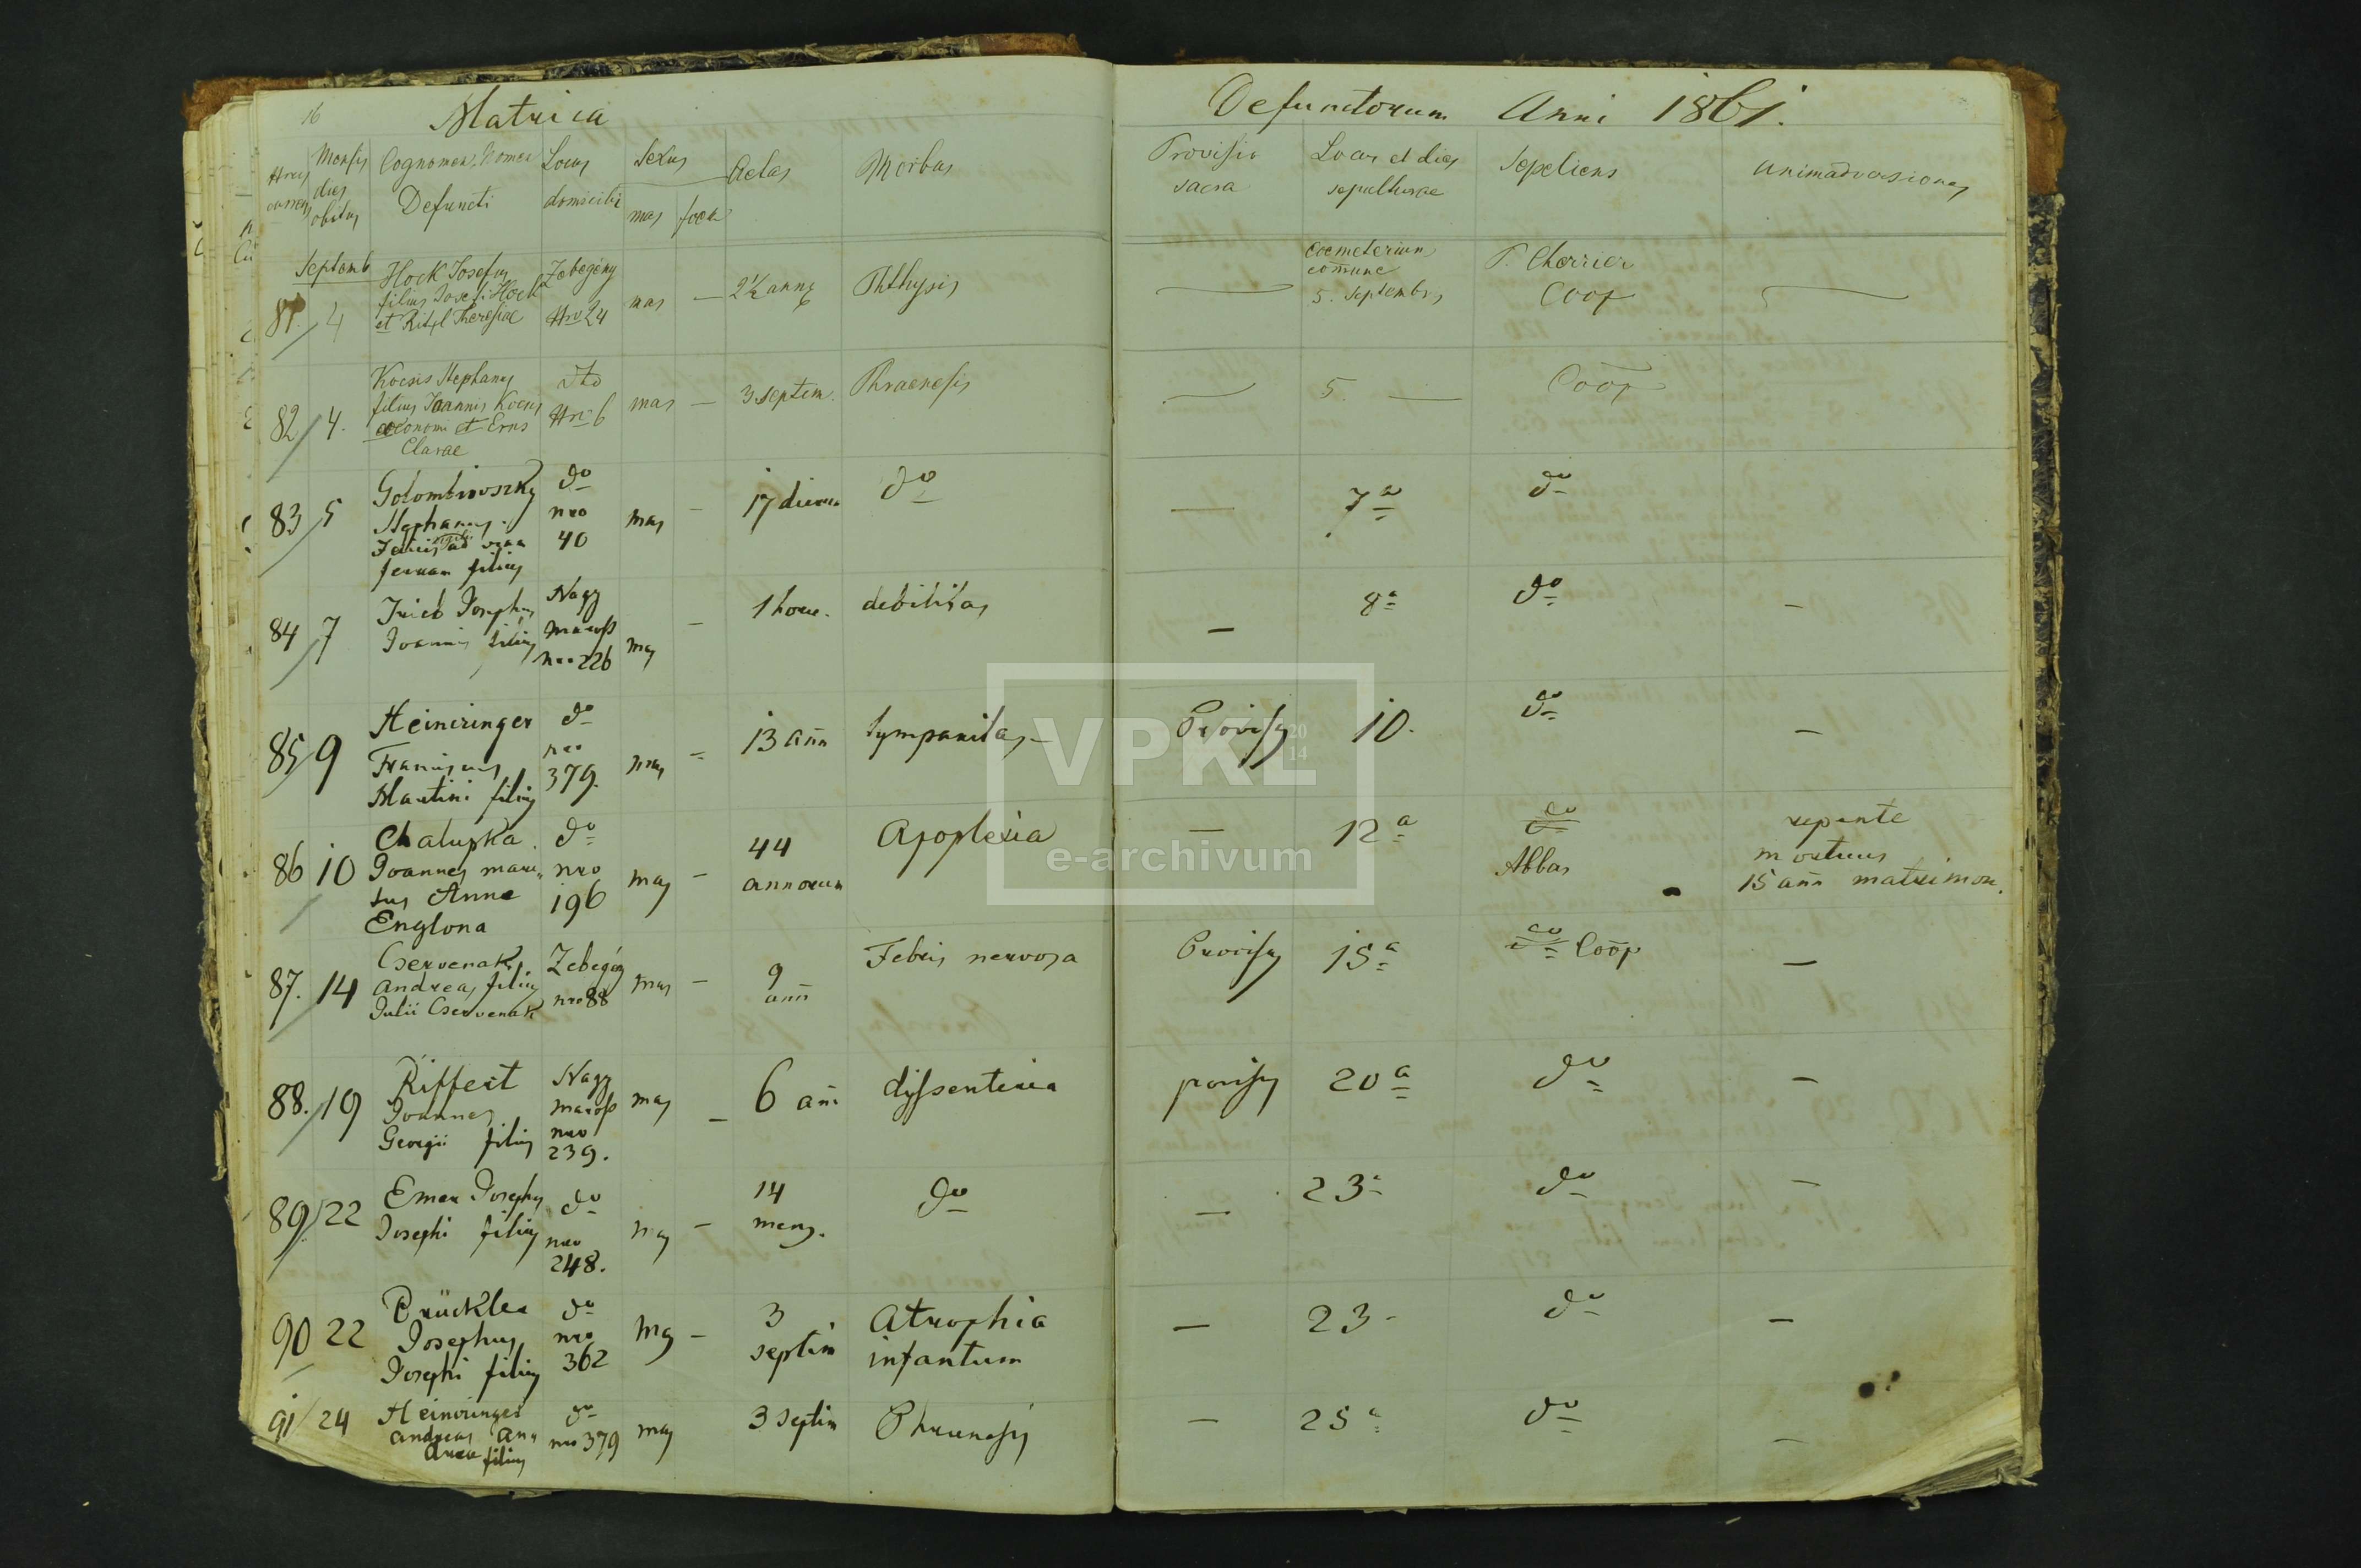 16
Matrica
Defunctorum Anni 1861.
Nrus currens
Mensis dies obitus
Cognomen, Nomen Defuncti
Locus domicilii
Sexus
mas foem
Aetas
Morbus
Provisio sacra
Locus et dies sepulturae
Sepeliens
Animadversiones
Septemb
81. 4
Hock Josefus
filius Josefi Hock
et Ritzl Theresiae
Zebegény
Nro 24
mas — 2½ anni
Phthysis
—
Coemeterium
comune
5. Septembris
P. Cherrier
Coop
—
82 / 4.
Kocsis Stephanus
filius Joannis Kocsis
oeconomi et Erns
Clarae
dto
Nro 6
mas — 3 septim.
Phraenesis
— 5. —
Coop
83 / 5
Golombiovszky
Stephanus
filius
do
nro
40
mas — 17 dierum
do
— 7a
do
84 / 7
Josephus
Joannis filius
Nagy
Maross
nro 226
mas — 1 horae.
debilitas
— 8a
do
—
85 / 9
Heiniringer
Franciscus
Martini filius
do
nro
379.
mas — 13 ann
tympanitas —
Provisus 10.
do
—
86 10
Chalupka
Joannes mari-
tus Annae
Englona
do
nro
196
mas —
44
annorum
Apoplexia
— 12a
do
Abbas
repente
mortuus
15 ann matrimon.
87. 14
Cservenak
Andreas filius
Julii Cservenak
Zebegény
nro 88
mas —
9
ann
Febris nervosa
Provisus 15a
do Coop
—
88. / 19
Riffert
Joannes
Georgii filius
Nagy
Maross
nro
239.
mas — 6 ann
dyssenteria
provisus 20a
do
—
89 / 22
Emer Josephus
Josephi filius
do
nro
248.
mas —
14
mens.
do
— 23a
do
—
90 22
Brückler
Josephus
Josephi filius
do
nro
362
mas —
3
septim
Atrophia
infantum
— 23 -
do
—
91 / 24
Heinringer
Andreas
filius
do
nro 379
mas
3 septim
Phraenesis
— 25a
do
—
VPKL
20
14
e-archivum